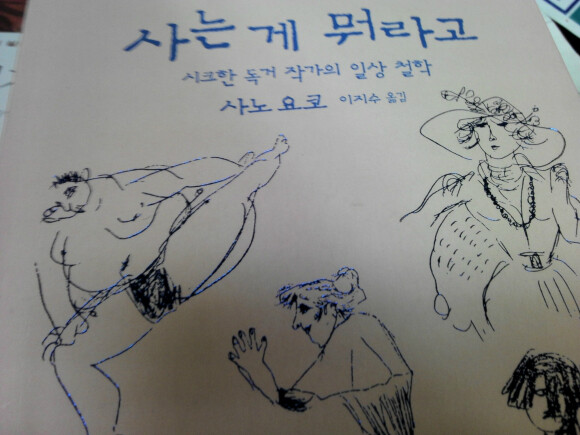 사는 게 뭐라고
시크한 독거 작가의 일상 철학
사노 요코 이지수 옮김